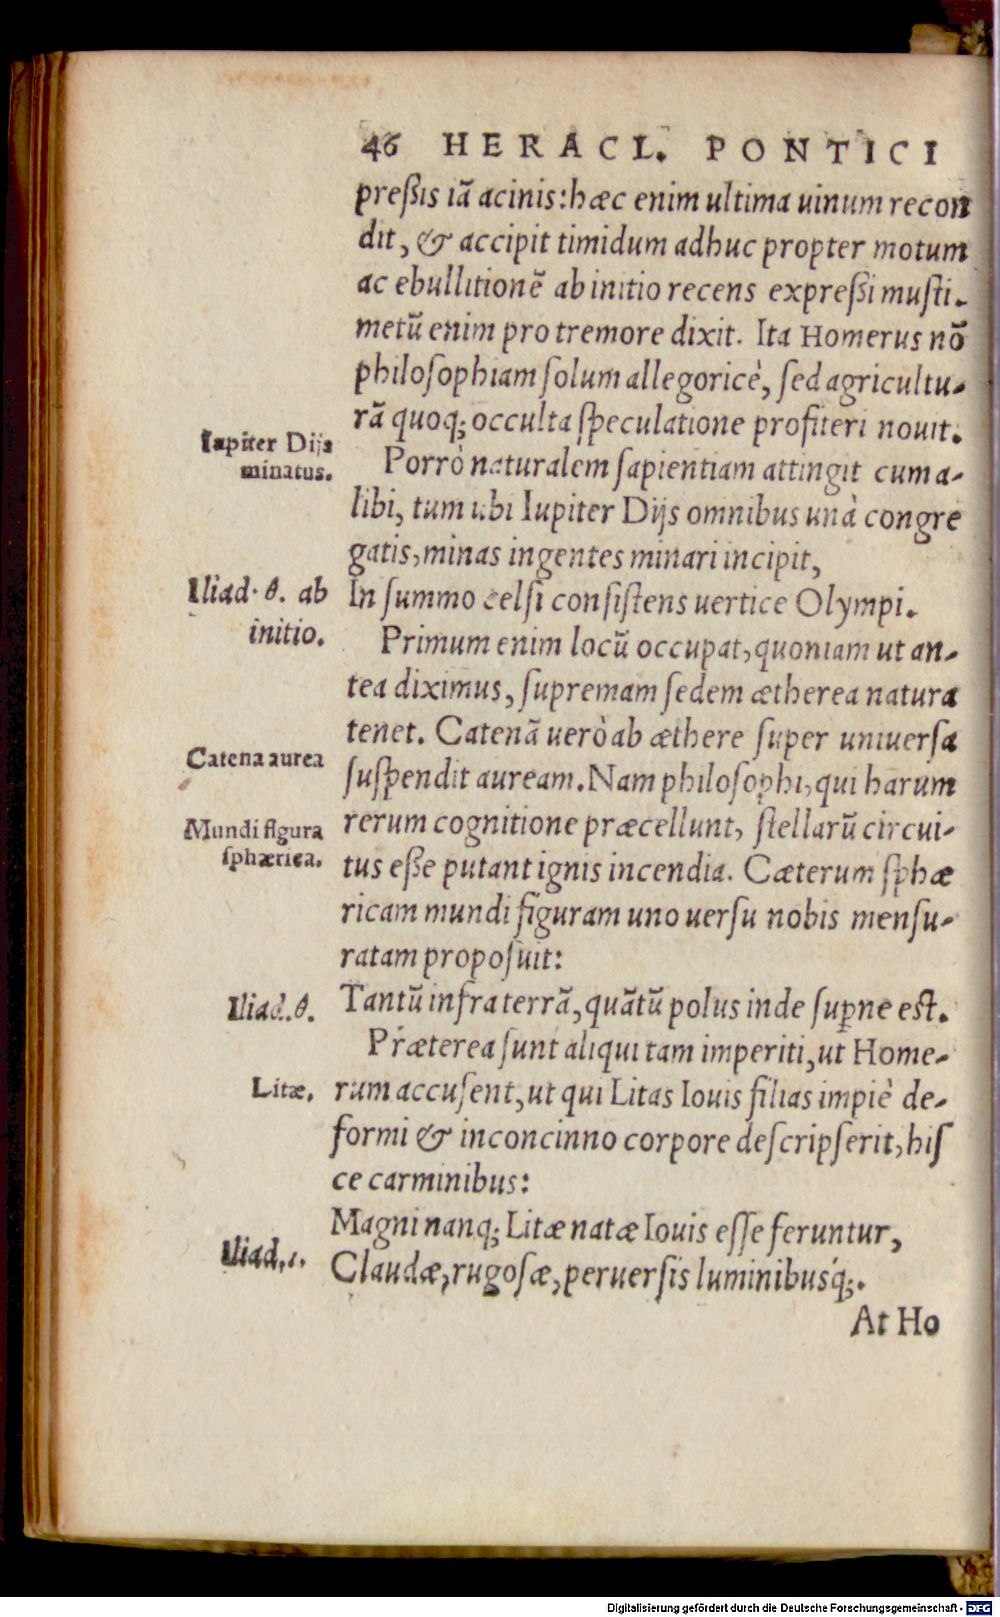 46 HERACL. PONTICI
preſsis iã acinis: hæc enim ultima uinum recon
dit, & accipit timidum adhuc propter motum
ac ebullitionẽ ab initio recens expreſsi muſti.
metũ enim pro tremore dixit. Ita Homerus nõ
philoſophiam ſolum allegoricè, ſed agricultu-
rã quoq; occulta ſpeculatione profiteri nouit.
Iupiter Dijs
minatus.
Porrò naturalem ſapientiam attingit cum a-
libi, tum ubi Iupiter Dijs omnibus unà congre
gatis, minas ingentes minari incipit,
Iliad. θ. ab
initio.
In ſummo celſi conſiſtens uertice Olympi.
Primum enim locũ occupat, quoniam ut an-
tea diximus, ſupremam ſedem ætherea natura
tenet. Catenã uerò ab æthere ſuper uniuerſa
Catena aurea
ſuſpendit auream. Nam philoſophi, qui harum
Mundi figura
ſphærica.
rerum cognitione præcellunt, ſtellarũ circui-
tus eſſe putant ignis incendia. Cæterum ſphæ
ricam mundi figuram uno uerſu nobis menſu-
ratam propoſuit:
Iliad. θ.
Tantũ infra terrã, quãtũ polus inde ſupne eſt.
Præterea ſunt aliqui tam imperiti, ut Home-
Litæ.
rum accuſent, ut qui Litas Iouis filias impiè de-
formi & inconcinno corpore deſcripſerit, hiſ
ce carminibus:
Magni nanq; Litæ natæ Iouis eſſe feruntur,
Iliad. ι.
Claudæ, rugoſæ, peruerſis luminibusq́;.
At Ho
Digitalisierung gefördert durch die Deutsche Forschungsgemeinschaft - DFG